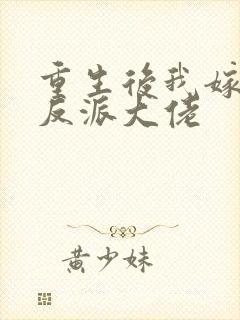 重生後我嫁
反派大佬
黄少妹